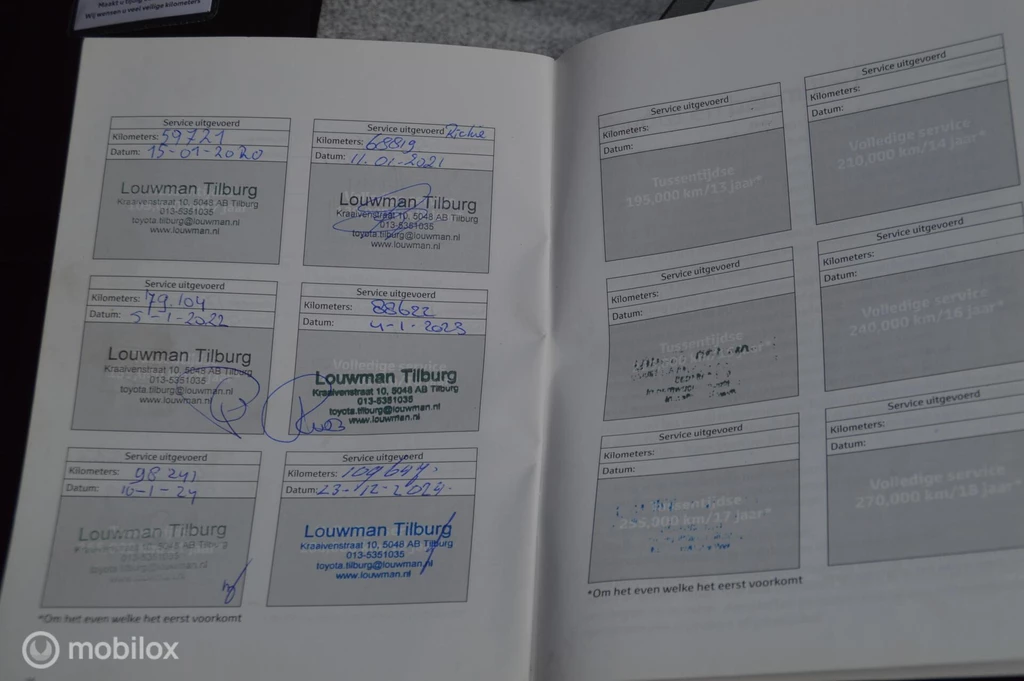 Wij wensen u veel veilige kilometers
Service uitgevoerd
Kilometers: 59721
Datum: 15-01-2020
Louwman Tilburg
Kraaivenstraat 10, 5048 AB Tilburg
013-5351035
toyota.tilburg@louwman.nl
www.louwman.nl
Service uitgevoerd Richie
Kilometers: 68819
Datum: 11-01-2021
Louwman Tilburg
Kraaivenstraat 10, 5048 AB Tilburg
013-5351035
toyota.tilburg@louwman.nl
www.louwman.nl
Service uitgevoerd
Kilometers: 79.104
Datum: 5-1-2022
Louwman Tilburg
Kraaivenstraat 10, 5048 AB Tilburg
013-5351035
toyota.tilburg@louwman.nl
www.louwman.nl
Service uitgevoerd
Kilometers: 88622
Datum: 4-1-2023
Volledige service
Louwman Tilburg
Kraaivenstraat 10, 5048 AB Tilburg
013-5351035
toyota.tilburg@louwman.nl
www.louwman.nl
Service uitgevoerd
Kilometers: 98241
Datum: 16-1-24
Louwman Tilburg
Kraaivenstraat 10, 5048 AB Tilburg
Service uitgevoerd
Kilometers: 109647.
Datum: 23-12-2024.
Louwman Tilburg
Kraaivenstraat 10, 5048 AB Tilburg
013-5351035
toyota.tilburg@louwman.nl
www.louwman.nl
*Om het even welke het eerst voorkomt
Service uitgevoerd
Kilometers:
Datum:
Tussentijdse
195,000 km/13 jaar*
Service uitgevoerd
Kilometers:
Datum:
Volledige service
210,000 km/14 jaar*
Service uitgevoerd
Kilometers:
Datum:
Tussentijdse
Service uitgevoerd
Kilometers:
Datum:
Volledige service
240,000 km/16 jaar*
Service uitgevoerd
Kilometers:
Datum:
Tussentijdse
255,000 km/17 jaar*
Service uitgevoerd
Kilometers:
Datum:
Volledige service
270,000 km/18 jaar*
*Om het even welke het eerst voorkomt
mobilox